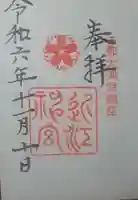 奉拝
近江
神宮
令和六年十一月十日